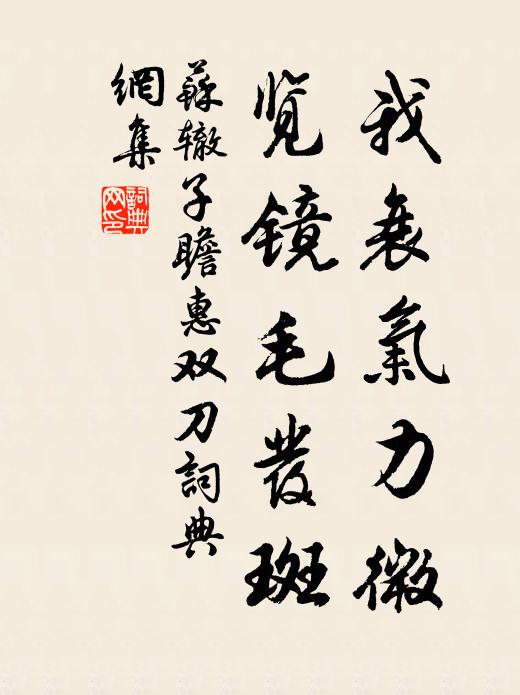 我衰氣力微
览镜毛发斑
蘇辙子瞻惠双刀詞典
網集
詞典
网印